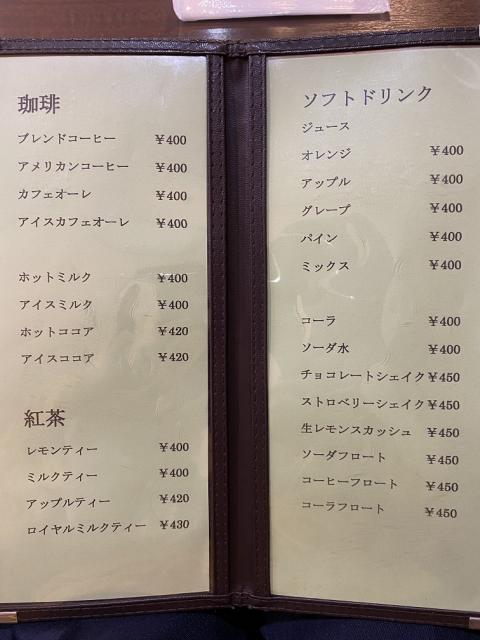 珈琲
ブレンドコーヒー ¥400
アメリカンコーヒー ¥400
カフェオーレ ¥400
アイスカフェオーレ ¥400
ホットミルク ¥400
アイスミルク ¥400
ホットココア ¥420
アイスココア ¥420
紅茶
レモンティー ¥400
ミルクティー ¥400
アップルティー ¥420
ロイヤルミルクティー ¥430
ソフトドリンク
ジュース
オレンジ ¥400
アップル ¥400
グレープ ¥400
パイン ¥400
ミックス ¥400
コーラ ¥400
ソーダ水 ¥400
チョコレートシェイク ¥450
ストロベリーシェイク ¥450
生レモンスカッシュ ¥450
ソーダフロート ¥450
コーヒーフロート ¥450
コーラフロート ¥450